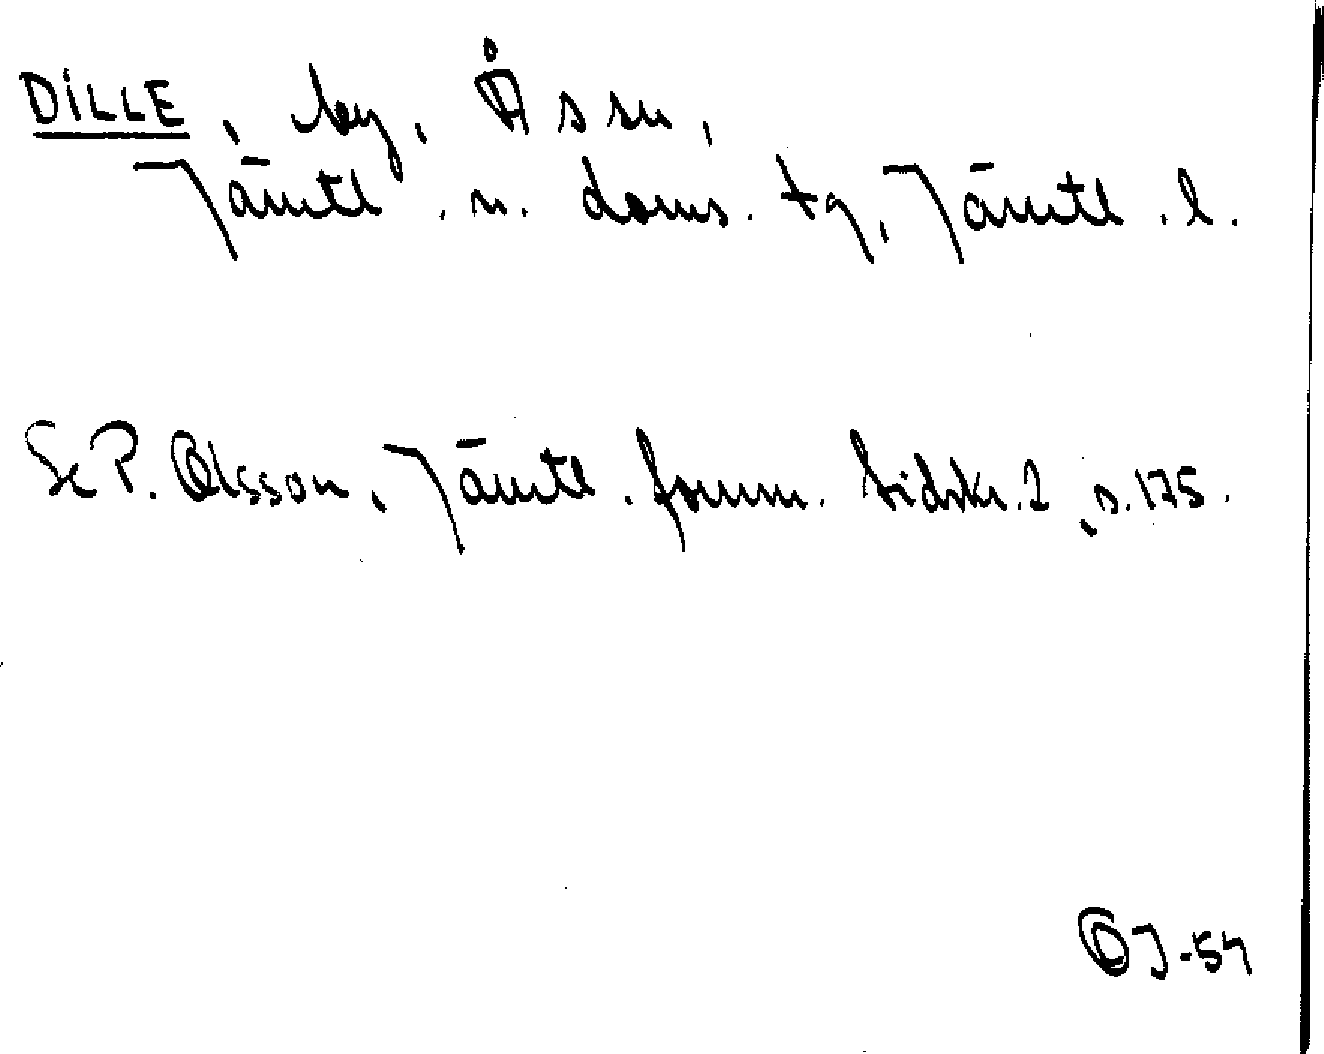 DILLE, by, Ås sn,
Jämtl. n. doms. tg, Jämtl. l.
Se P. Olsson, Jämtl. fornm. tidskr. 2, s. 175.
OJ-54